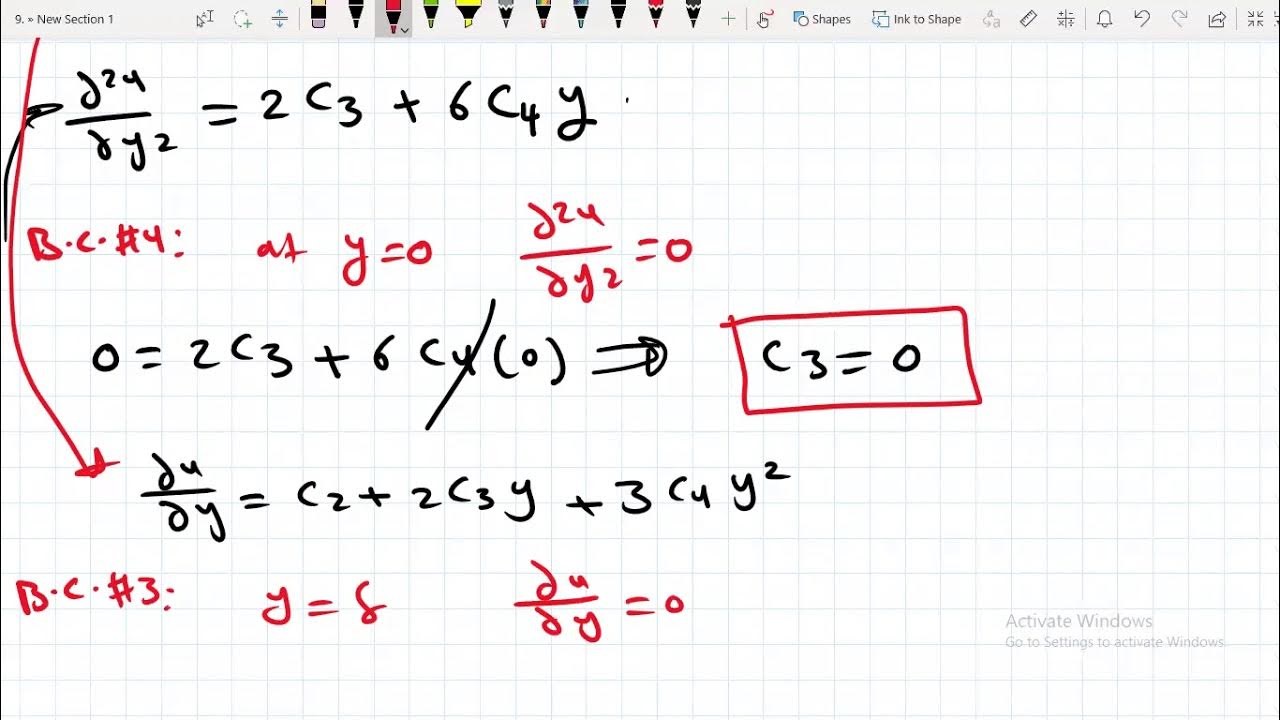 9. » New Section 1
Shapes
Ink to Shape
∂²u/∂y² = 2C₃ + 6C₄y
B.C.#4: at y=0 ∂²u/∂y² = 0
0 = 2C₃ + 6C₄(0) ⇒ C₃ = 0
∂u/∂y = C₂ + 2C₃y + 3C₄y²
B.C.#3: y = δ ∂u/∂y = 0
Activate Windows
Go to Settings to activate Windows.